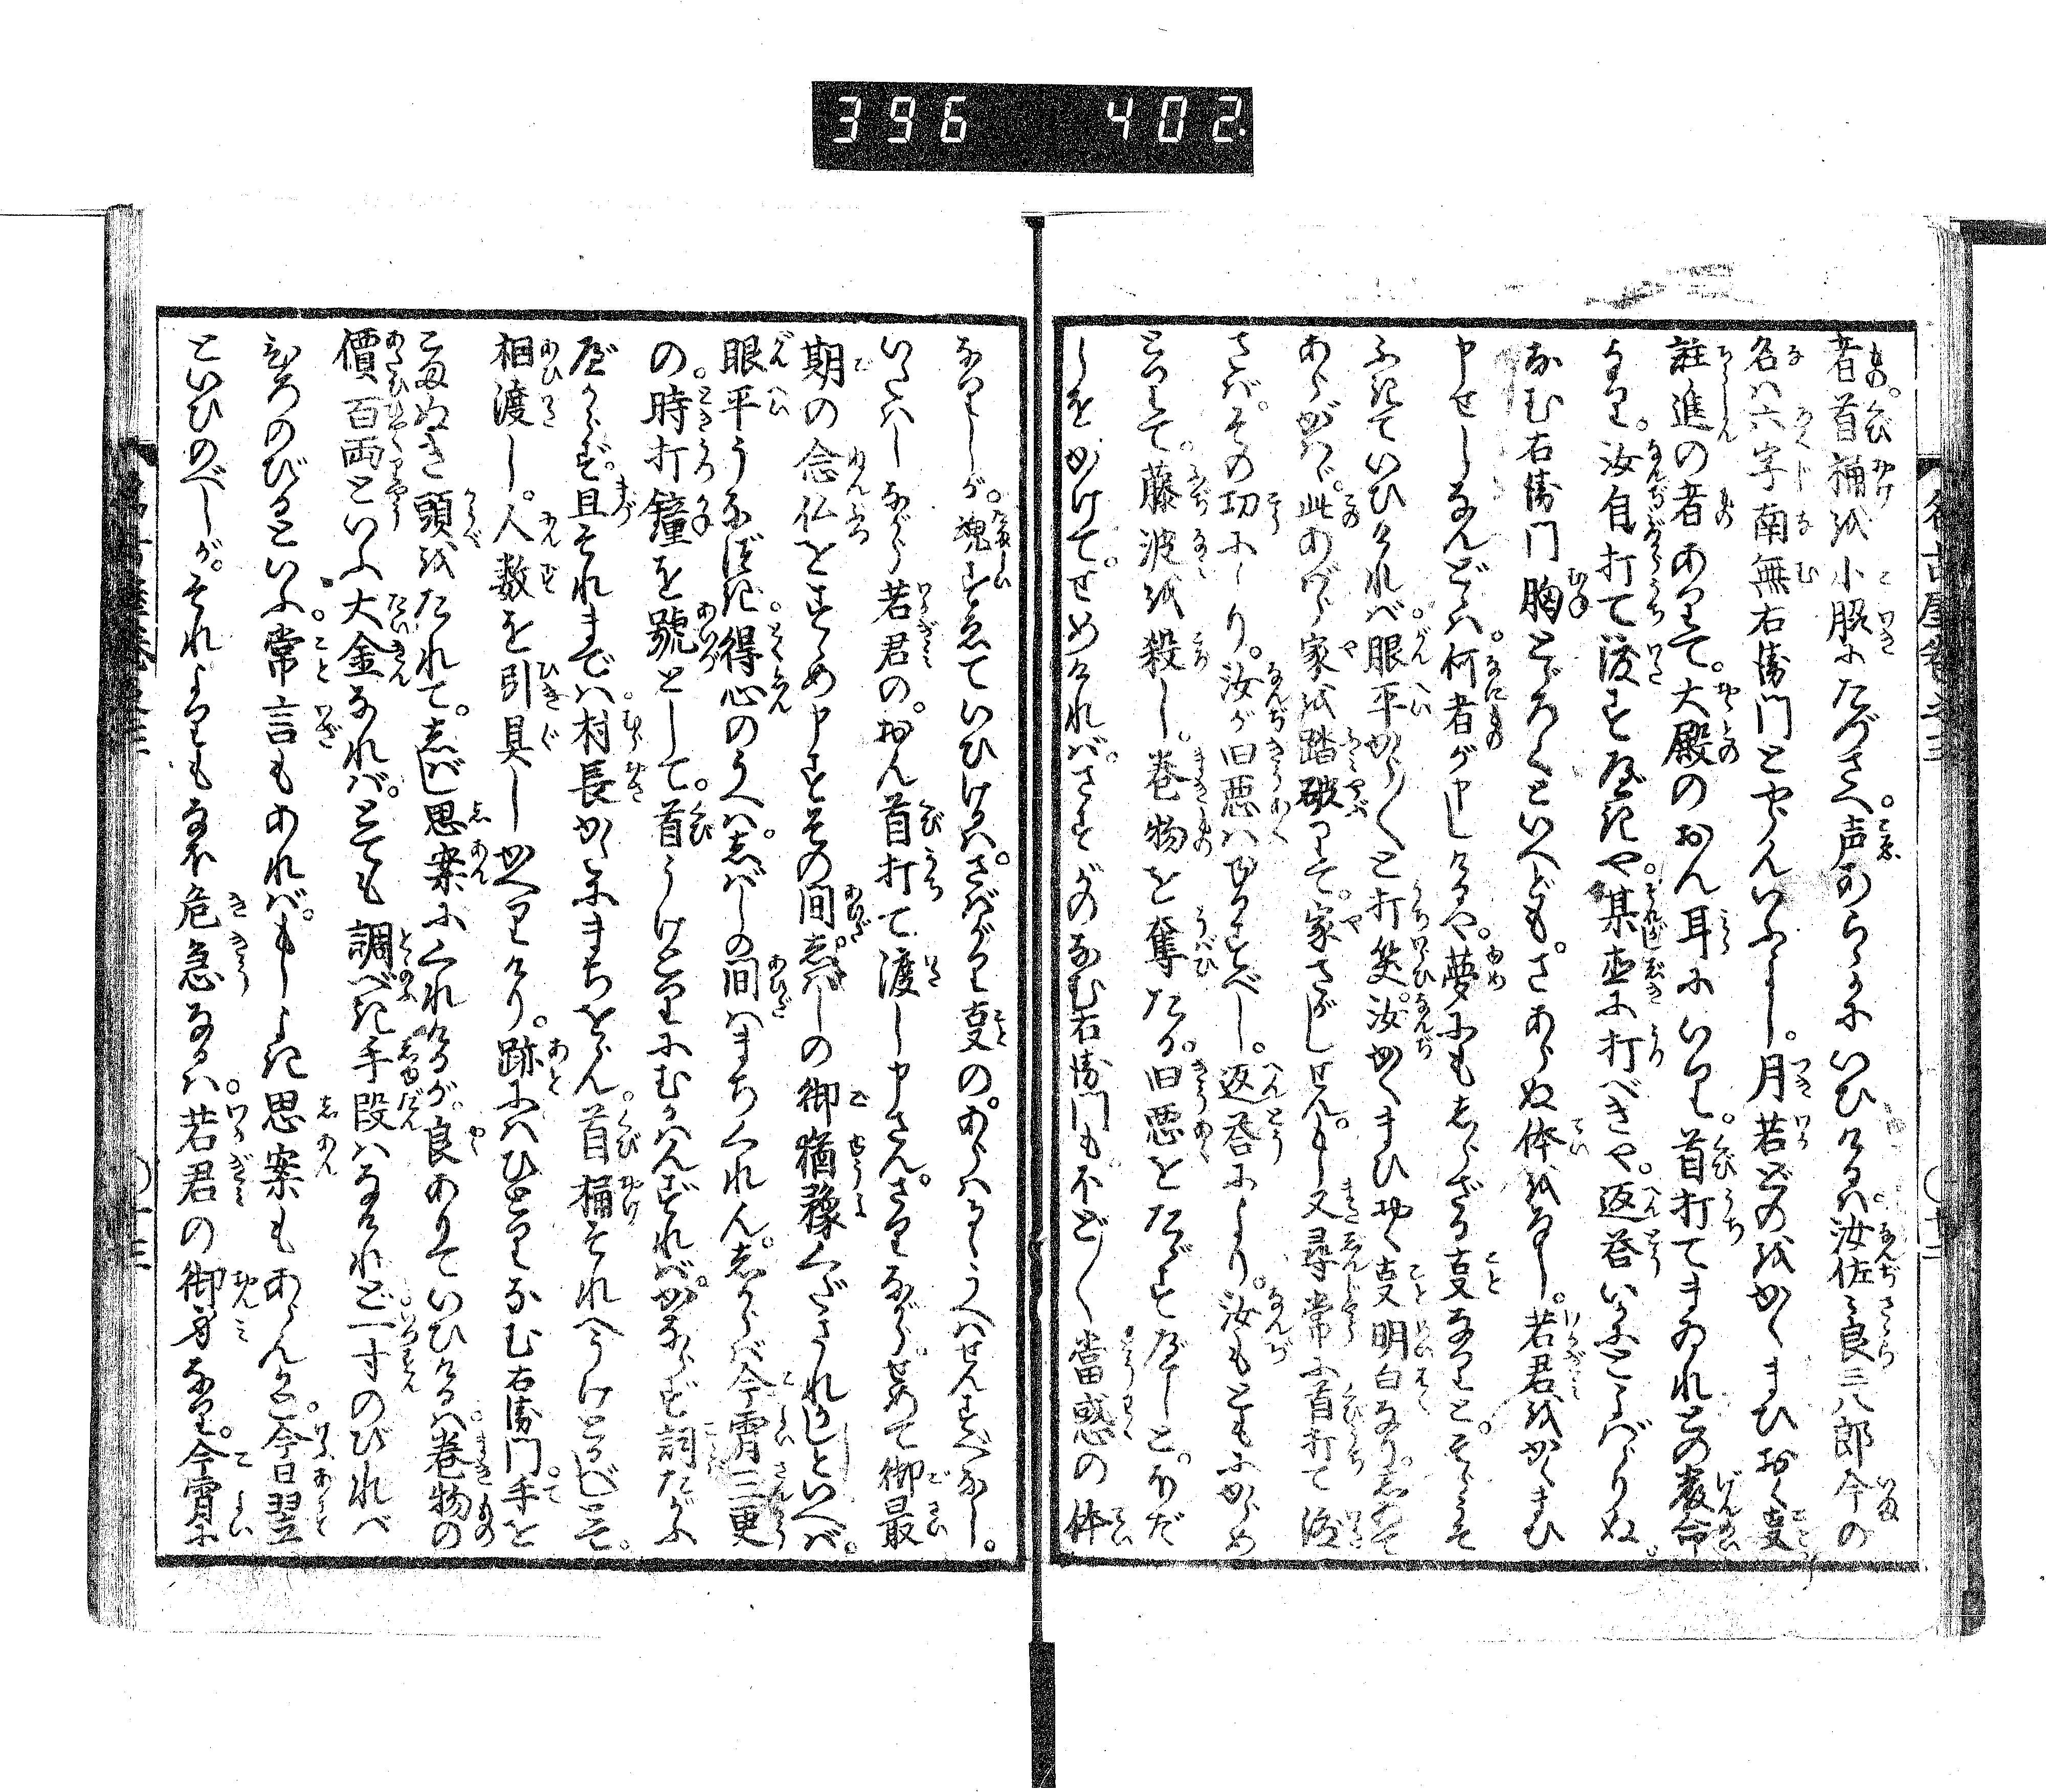 396 402
者首桶を小脇にたづさへ声あらゝかにいひけるは。汝佐々良三八郎今の
名は六字南無右衛門とやらんいふよし。月若どのをかくまひおく事
註進の者ありて。大殿のおん耳にいり。首打てまゐれとの厳命
なり。汝自打て渡すべきや。某直に打べきや。返答いかにとよばゝりぬ。
なむ右衛門胸とゞろくといへども。さあらぬ体をなし。若君をかくまひ
申せしなんどゝは。何者が申しけるや。夢にもしらざる事なりと。そらうそ
ふきていひければ。眼平から〳〵と打笑。汝かくまひおく事明白なり。しひて
あらがはゞ。此あばら家を踏破りて。家さがしせん。もし又尋常に首打て渡
さば。その功により。汝が旧悪はゆるすべし。返答により。汝もともにからめ
とりて。藤波を殺し。巻物を奪たる。旧悪をたゞすべしと。ほだ
しをかけて。せめければ。さすがのなむ右衛門も。不どく當惑の体
なりしが。魂すゑていひけるは。さばかり事の。あらはれしうへはせんすべなし。
いたはしながら若君の。おん首打て渡し申さん。さりながら。せめて御最
期の念仏をすゝめ申すその間。しばしの御猶豫くだされかしといへば。
眼平うなづき。得心のうへは。しばしの間はまちくれん。しからば今宵三更
の時打鐘を號として。首うけとりにむかはんずれば。かならず詞たがふ
べからず。且それまでは村長かたにまちをらん。首桶それへうけとるべしとぞ。
相渡し。人数を引具してかへりけり。跡にはひとりなむ右衛門。手を
こまぬき頭をたれて。しばし思案にくれけるが。良ありていひけるは。巻物の
價百両といふ大金なれば。とても調べき手段はなけれど一寸のびれば
ひろのびるといふ。常言もあれば。もしよき思案もあらんかと。今日翌
といひのべしが。それよりもなほ危急なるは。若君の御身なり。今宵に